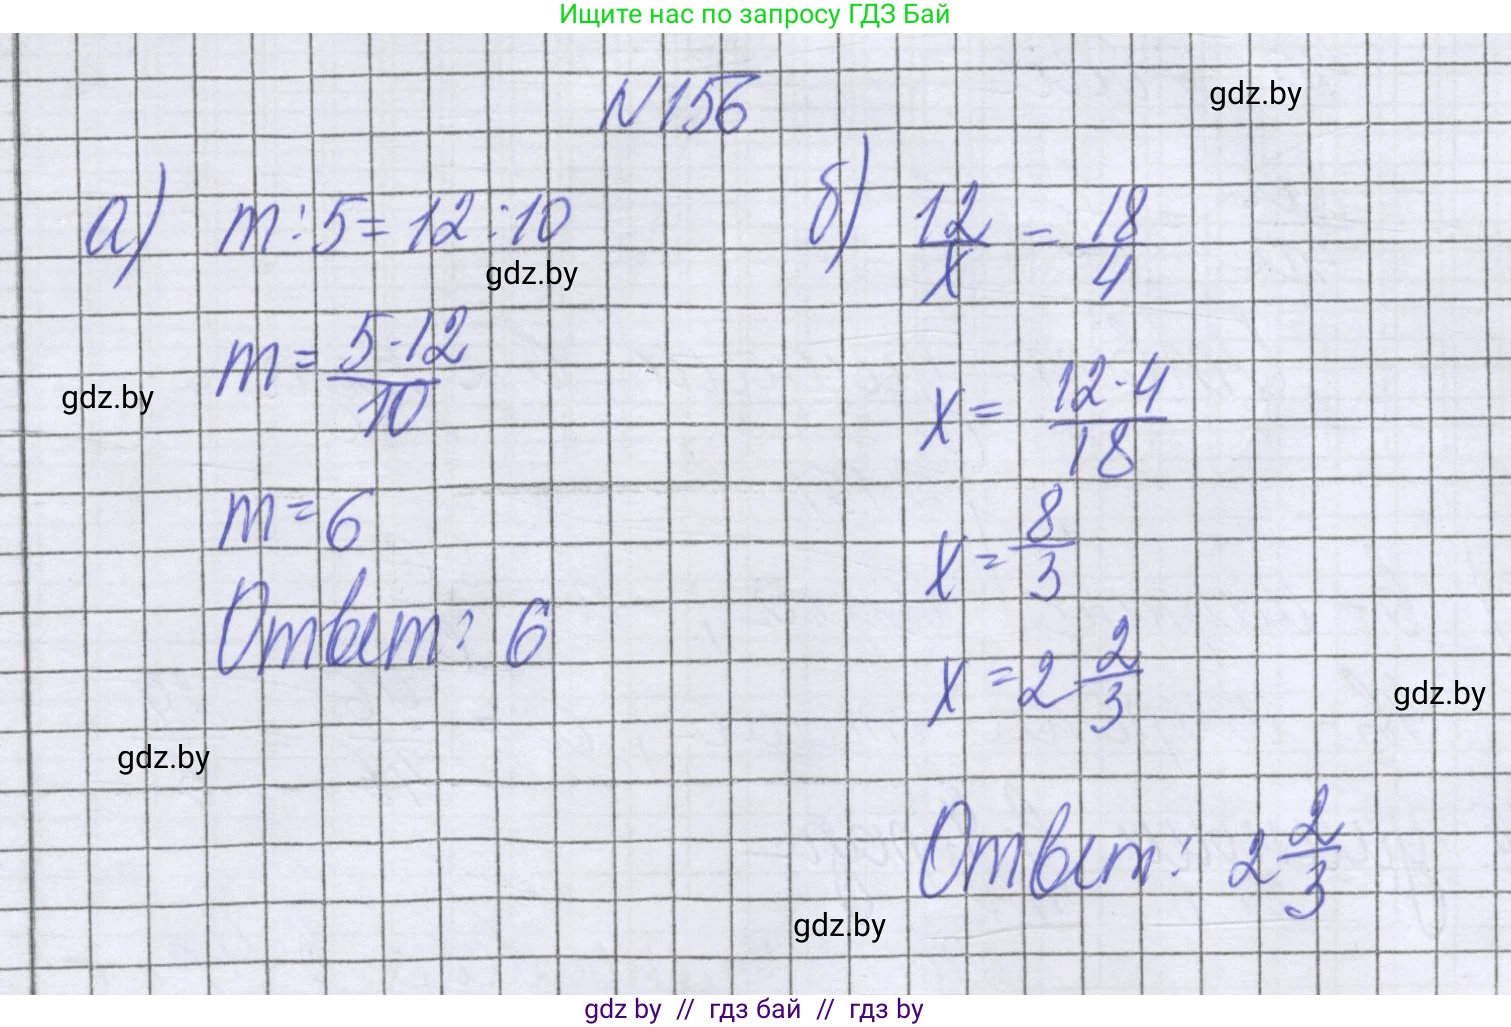 Ищите нас по запросу ГДЗ Бай
N156
gdz.by
а) m:5=12:10
б) 12/x = 18/4
gdz.by
m = 5·12/10
gdz.by
x = 12·4/18
m = 6
x = 8/3
Ответ: 6
x = 2 2/3
gdz.by
gdz.by
Ответ: 2 2/3
gdz.by
gdz by // гдз бай // гдз by